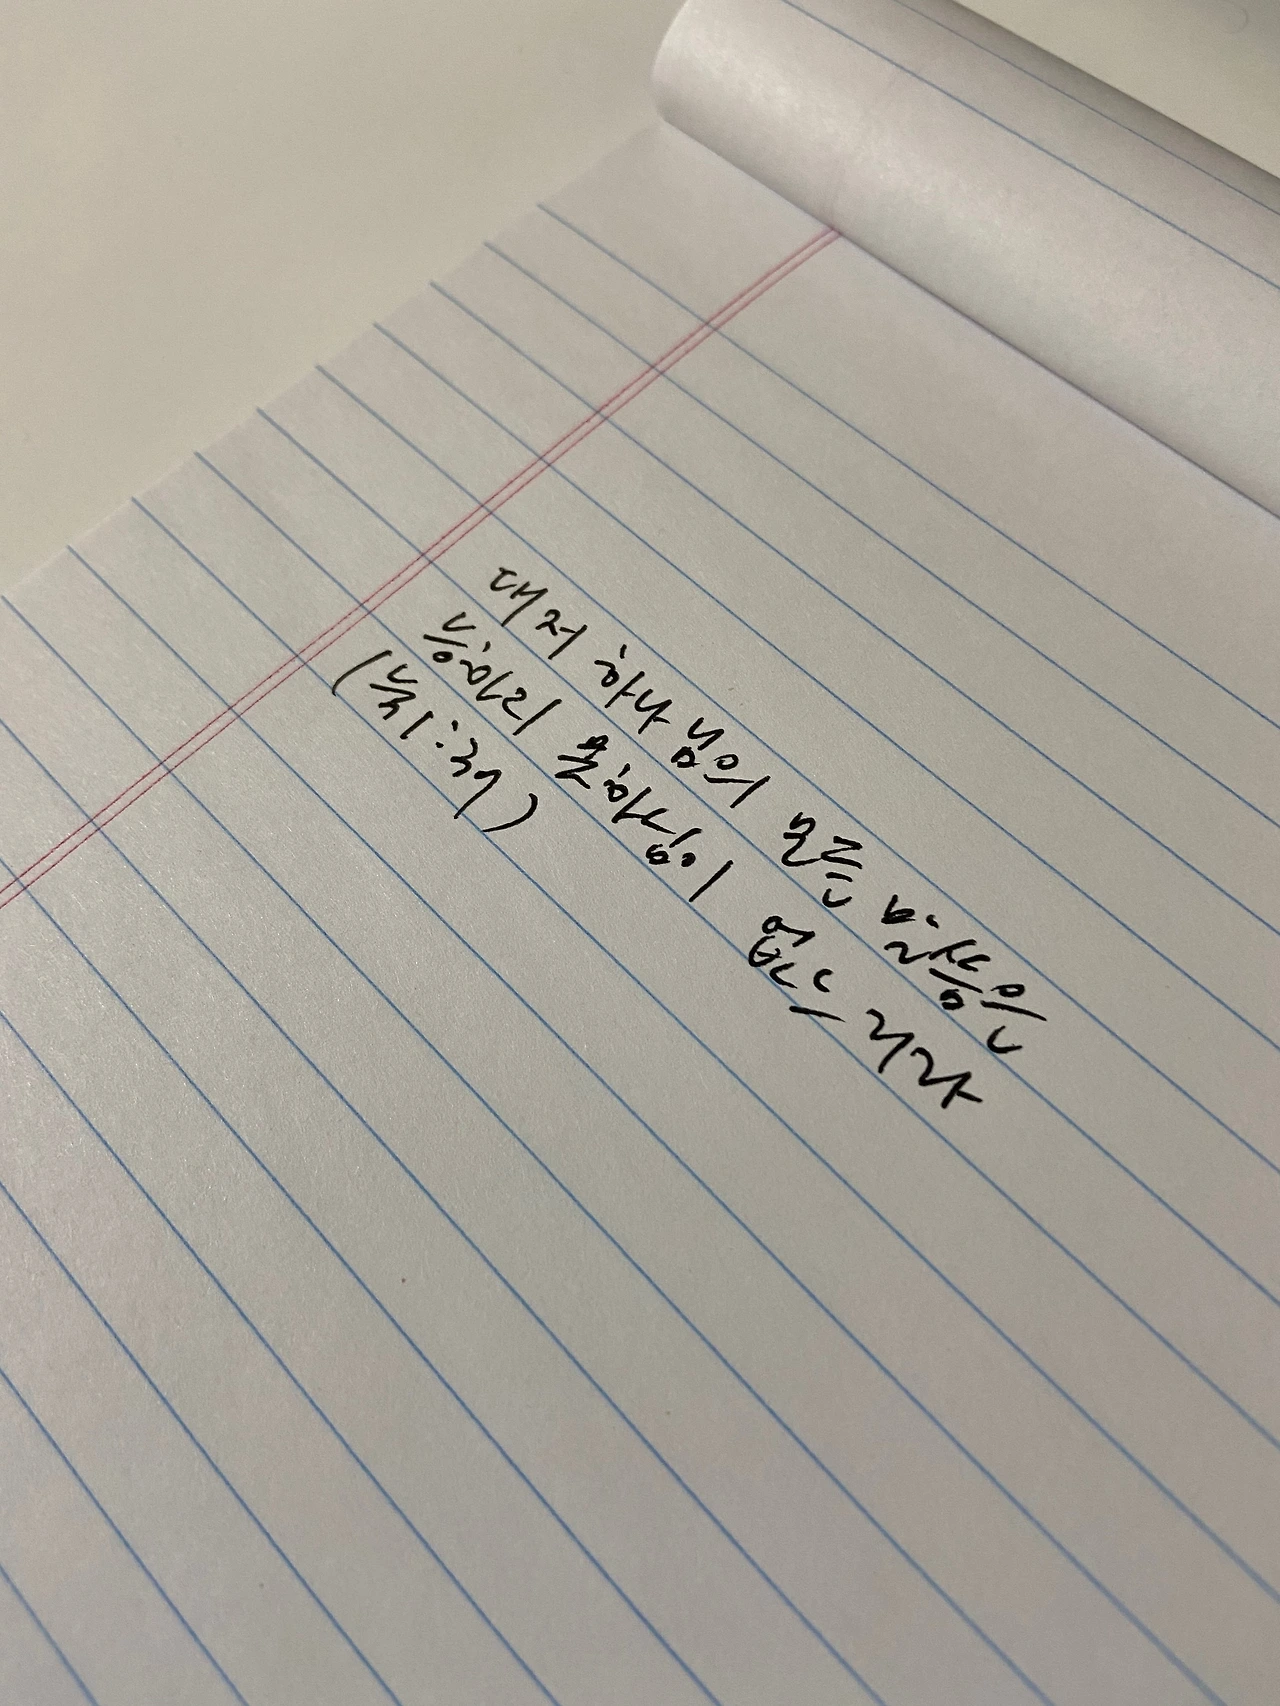 대저 하나님의 모든 말씀은
능하지 못하심이 없느니라
(눅1:37)